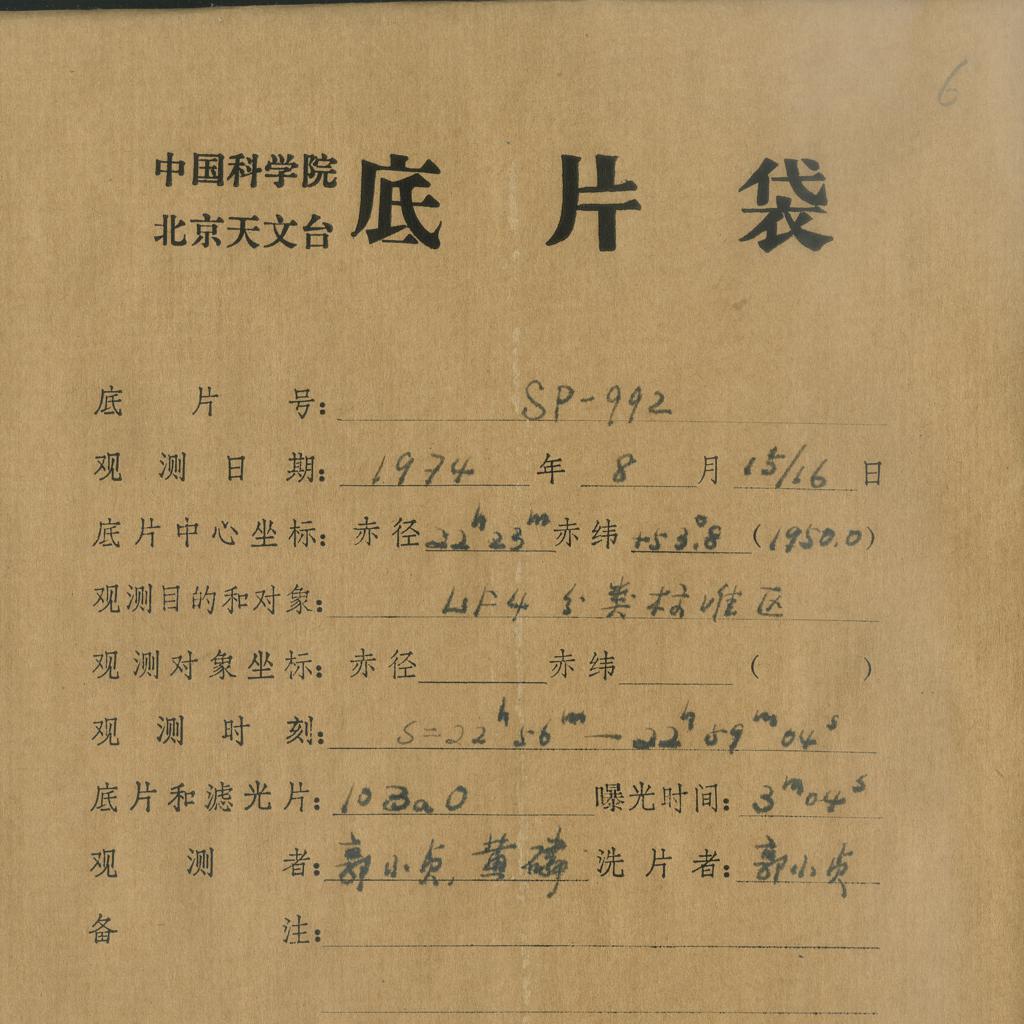 6
中国科学院
北京天文台
底片袋
底片号: SP-992
观测日期: 1974年8月15/16日
底片中心坐标: 赤径22ʰ23ᵐ赤纬+53°.8 (1950.0)
观测目的和对象: UF4 分类标准区
观测对象坐标: 赤径 赤纬 ( )
观测时刻: S=22ʰ56ᵐ—22ʰ59ᵐ04ˢ
底片和滤光片: 103aO 曝光时间: 3ᵐ04ˢ
观测者: 郭小贞, 黄磷 洗片者: 郭小贞
备注: